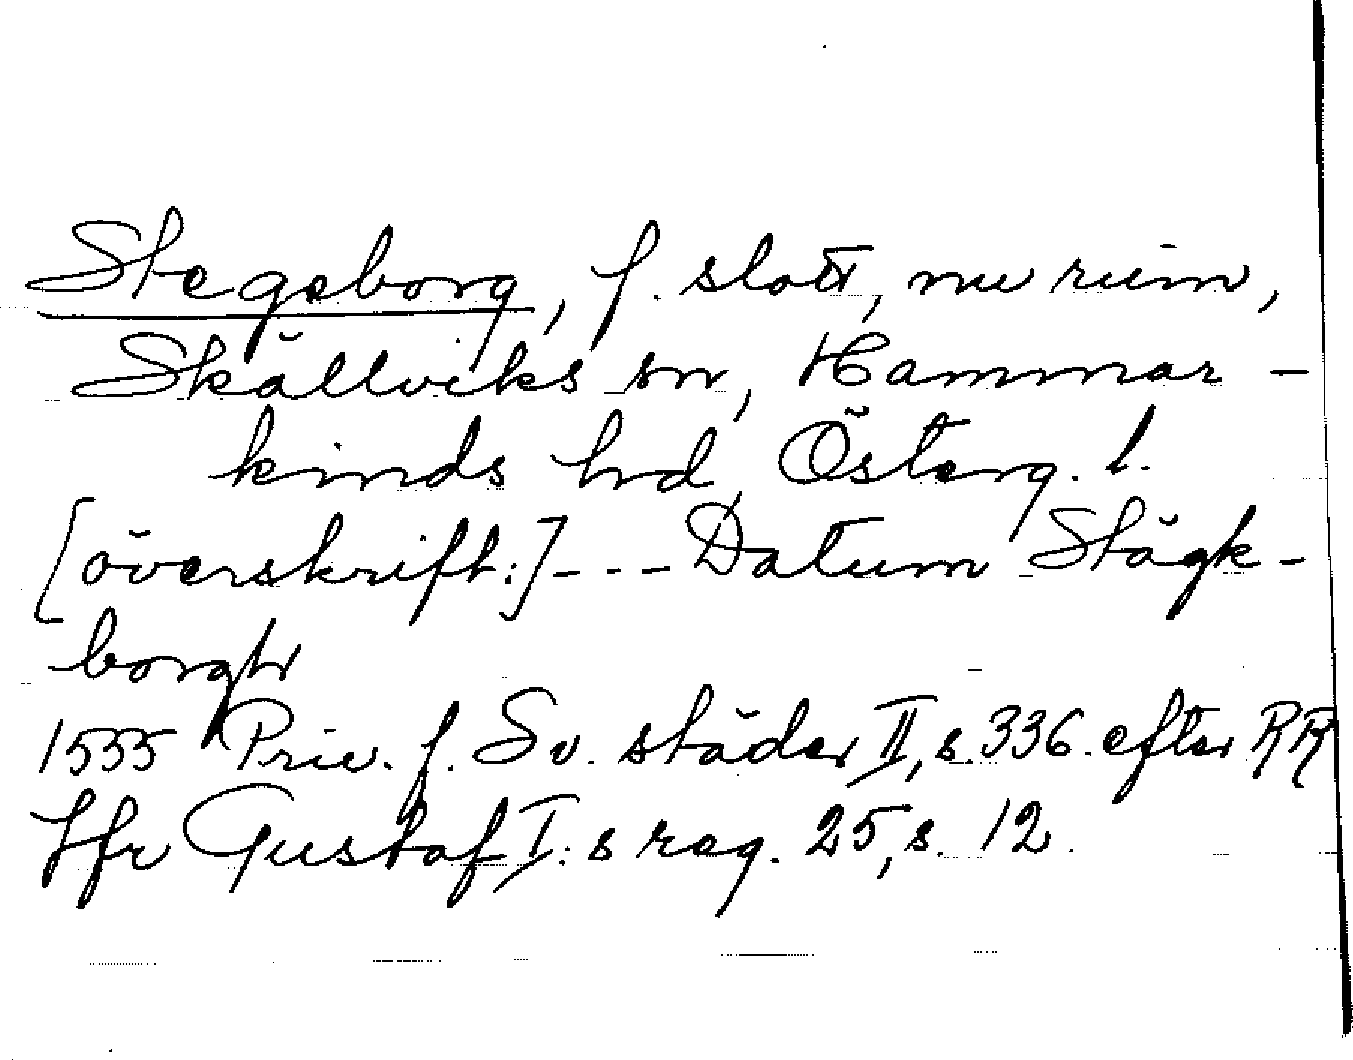 Stegeborg, f. slott, nu ruin,
Skällviks sn, Hammar-
kinds hd, Österg. l.
[överskrift:] --- Datum Stägk-
borgh
1555 Priv. f. Sv. städer II, s. 336. efter RR
Jfr Gustaf I:s reg. 25, s. 12.